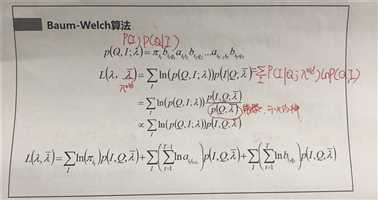 Baum-Welch算法
P(I) P(Q|I)
p(Q,I;λ) = π_{i_1} b_{i_1q_1} a_{i_1i_2} b_{i_2q_2} ... a_{i_{T-1}i_T} b_{i_Tq_T}
L(λ, λ̄) = ∑_I ln(p(Q,I;λ)) p(I|Q,λ̄) = ∑_I P(I|Q;λ^{old}) ln P(Q,I)
λ^{old}
= ∑_I ln(p(Q,I;λ)) p(I,Q;λ̄) / p(Q;λ̄)
∝ ∑_I ln(p(Q,I;λ)) p(I,Q;λ̄)
L(λ,λ̄) = ∑_I ln(π_{i_1}) p(I,Q;λ̄) + ∑_I (∑_{t=1}^{T-1} ln a_{i_t i_{t+1}}) p(I,Q,λ̄) + ∑_I (∑_{t=1}^{T} ln b_{i_t q_t}) p(I,Q,λ̄)